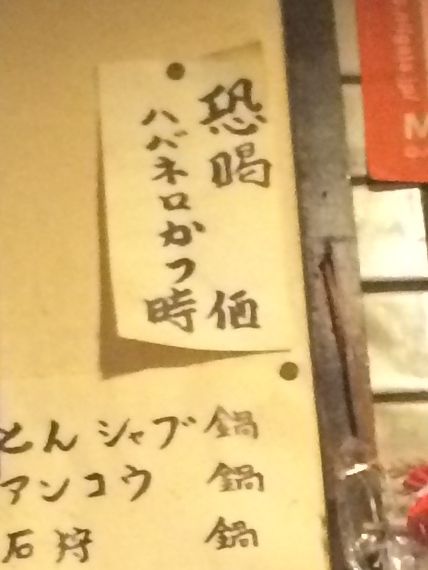 恐喝
ハバネロかつ
時価
とんシャブ鍋
アンコウ鍋
石狩鍋